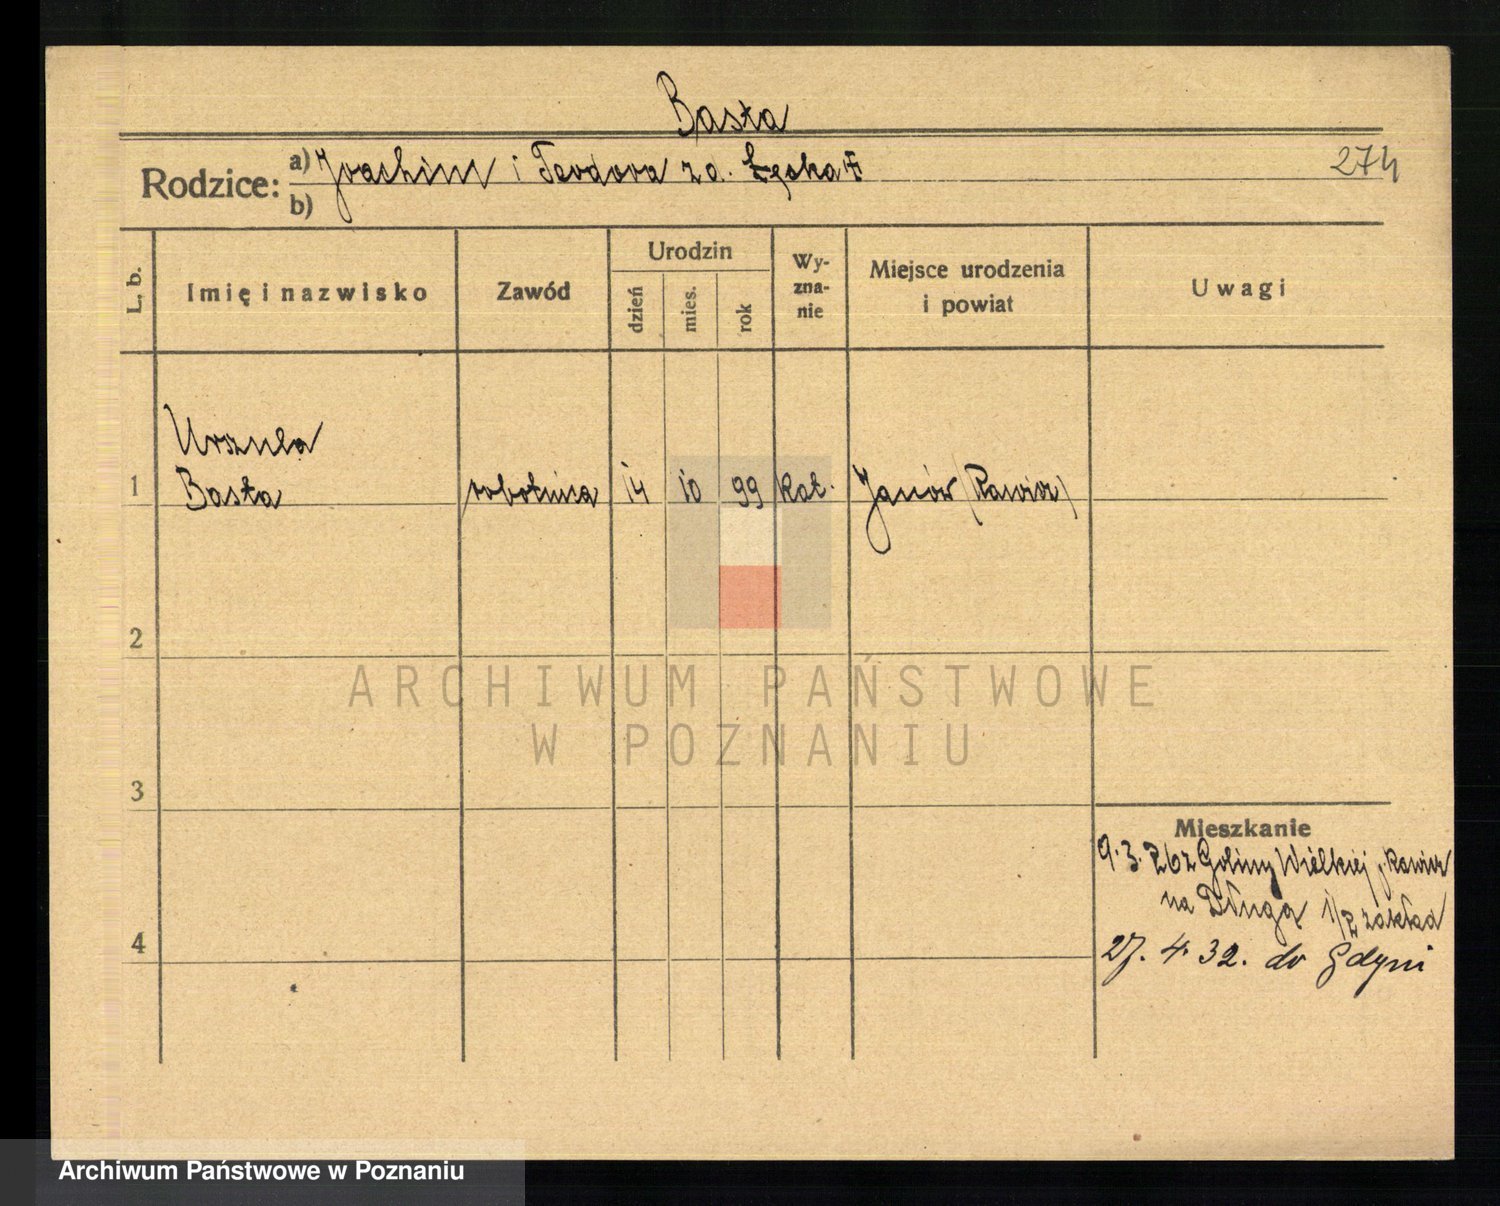 Basta
Rodzice: a) Joachim i Teodora zd. Łęska
b)
274
L. b.
Imię i nazwisko
Zawód
Urodzin
dzień
mies.
rok
Wy-
zna-
nie
Miejsce urodzenia
i powiat
Uwagi
Urszula
1 Basta robotnica 14 10 99 kat. Janów (Rawicz)
2
3
4
Mieszkanie
9. 3. Z Goliny Wielkiej, Rawicz
na Długą 1/2 zakład
27. 4. 32. do Gdyni
ARCHIWUM PAŃSTWOWE
W POZNANIU
Archiwum Państwowe w Poznaniu